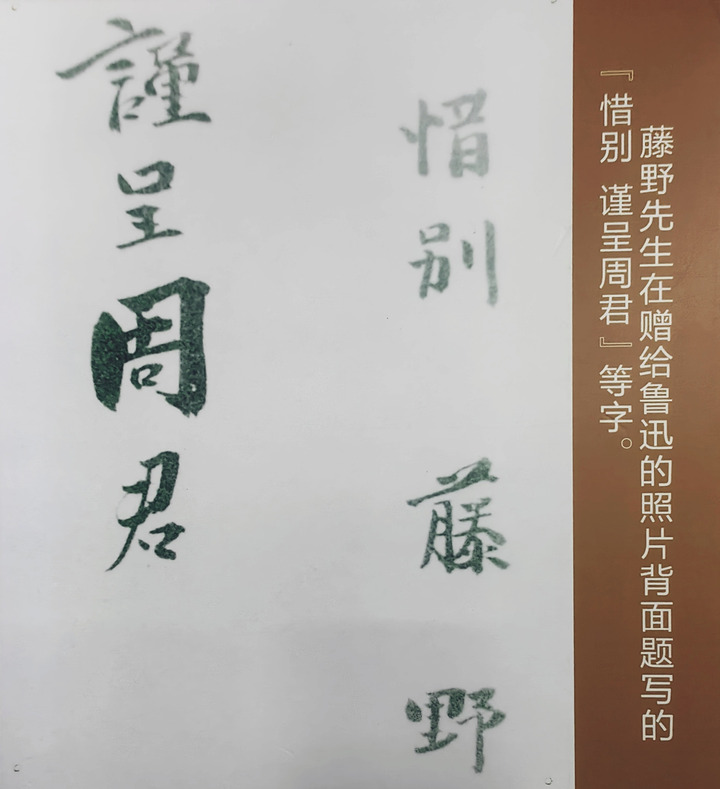 惜别 藤野
謹呈周君
藤野先生在赠给鲁迅的照片背面题写的
『惜别 谨呈周君』等字。